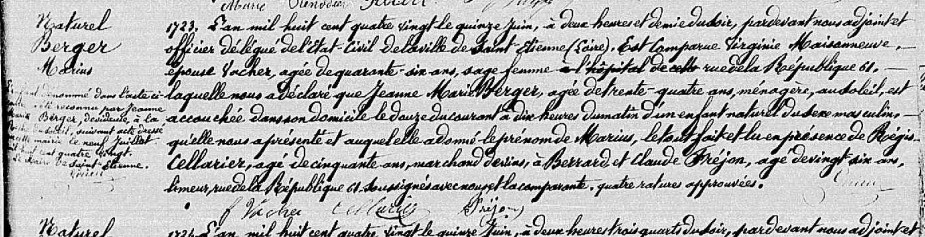 Naturel
Berger
Marius
L'enfant dénommé dans l'acte ci-
été reconnu par Jeanne
Marie Berger, décidime, à la
suivant acte dressé
mairie le neuf Juillet
cent quatre vingt.
de Saint-Etienne.
1723. L'an mil huit cent quatre vingt le quinze Juin, à deux heures et demie du soir, pardevant nous adjoint et
officier délégué de l'Etat-Civil de la ville de Saint-Etienne (Loire). Est Comparue Virginie Maisonneuve,
épouse Vacher, agée de quarante-six ans, sage femme à l'hôpital de cette rue de la République 61,
laquelle nous a déclaré que Jeanne Marie Berger, agée de trente-quatre ans, ménagère, au Soleil, est
accouchée dans son domicile le douze du courant à dix heures du matin d'un enfant naturel du sexe masculin,
qu'elle nous a présenté et auquel elle a donné le prénom de Marius, le tout fait et lu en présence de Régis
Cellarier, agé de cinquante ans, marchand de vins, à Berrard et Claude Fréjon, agé de vingt-six ans,
limeur, rue de la République 61. Soussignés avec nous et la comparante, quatre ratures approuvées.
f Vacher Cellarier Fréjon
Naturel
1724. L'an mil huit cent quatre vingt le quinze Juin, à deux heures trois quarts du soir, pardevant nous adjoint et